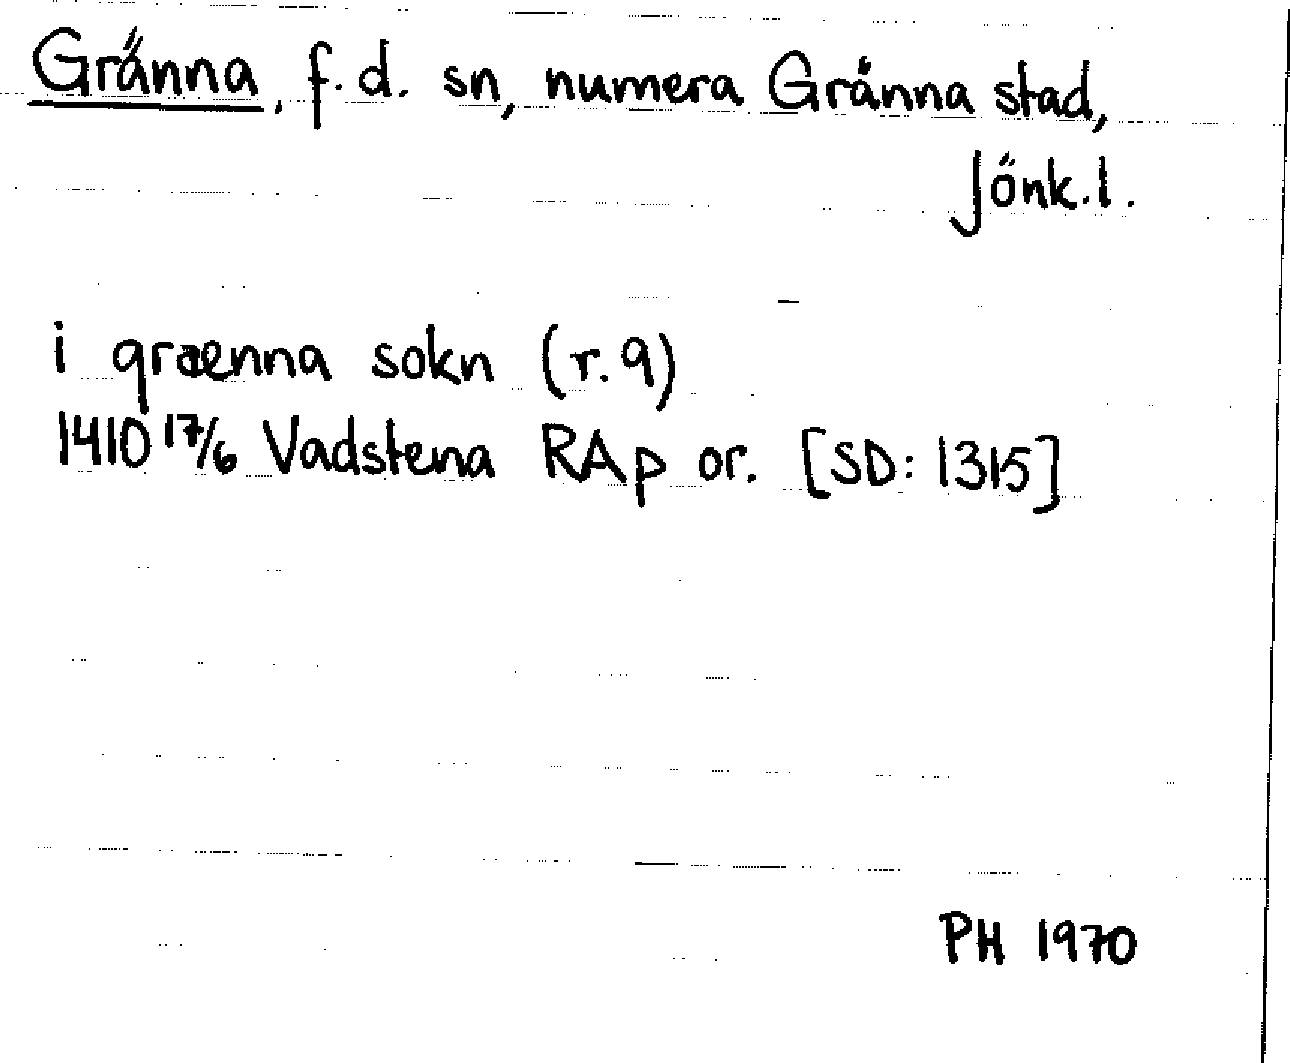 Gränna, f.d. sn, numera Gränna stad,
Jönk.l.
i graenna sokn (r.9)
1410 17/6 Vadstena RAp or. [SD: 1315]
PH 1970